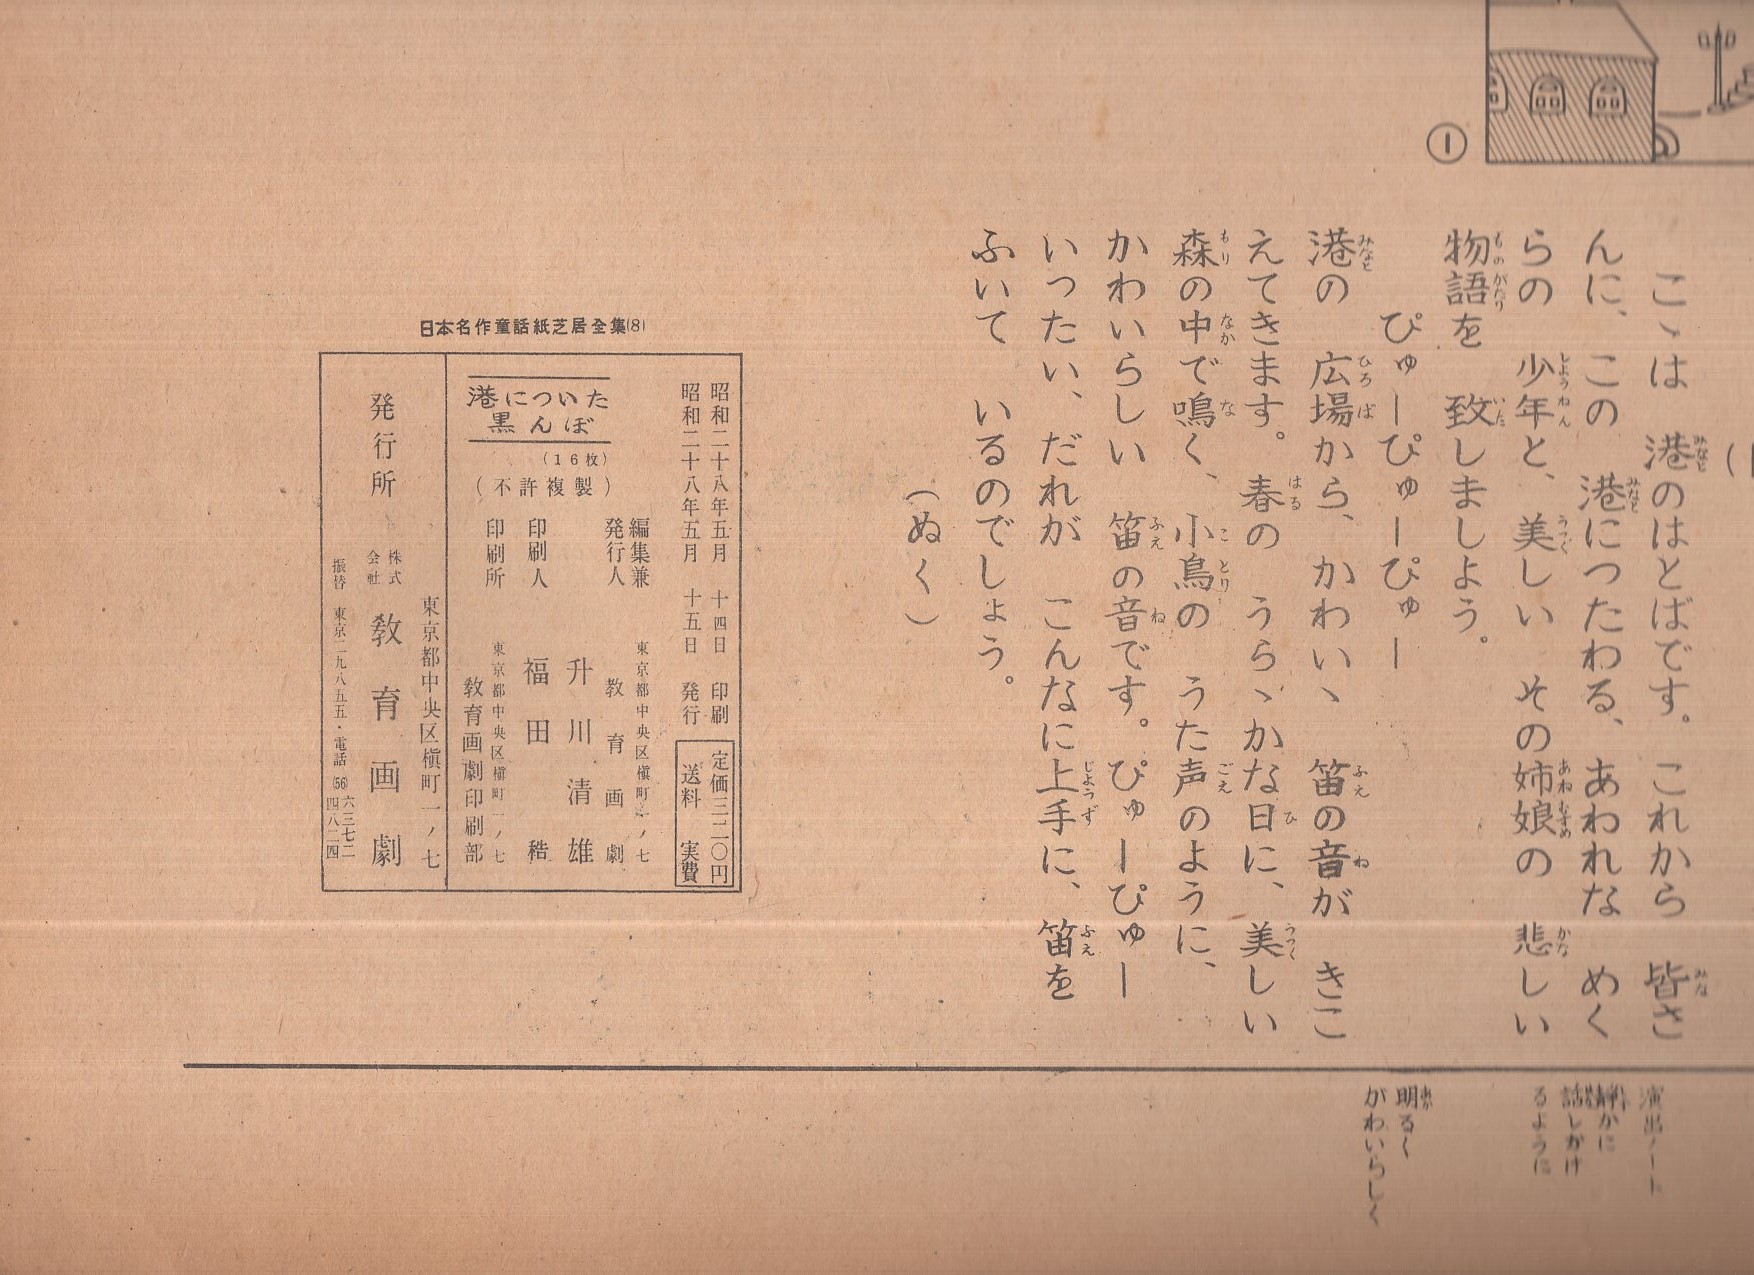 ①
こゝは　港のはとばです。これから　皆さ
んに、この　港につたわる、あわれな　めく
らの　少年と、美しい　その姉娘の　悲しい
物語を　致しましよう。
ぴゅーぴゅーぴゅー
港の　広場から、かわいゝ　笛の音が　きこ
えてきます。春の　うらゝかな日に、美しい
森の中で鳴く、小鳥の　うた声のように、
かわいらしい　笛の音です。ぴゅーぴゅー
いったい、だれが　こんなに上手に、笛を
ふいて　いるのでしょう。
（ぬく）
演出ノート
静かに
話しかけ
るように
明るく
かわいらしく
日本名作童話紙芝居全集(8)
昭和二十八年五月　十四日　印刷
昭和二十八年五月　十五日　発行
定価三二〇円
送料　実費
港についた
黒んぼ
（16枚）
（不許複製）
東京都中央区槇町一ノ七
編集兼
発行人　教育画劇
升川清雄
印刷人　福田
東京都中央区槇町一ノ七
印刷所　教育画劇印刷部
東京都中央区槇町一ノ七
発行所　株式会社　教育画劇
振替　東京二九八五五・電話(56)六三七二
四八二四